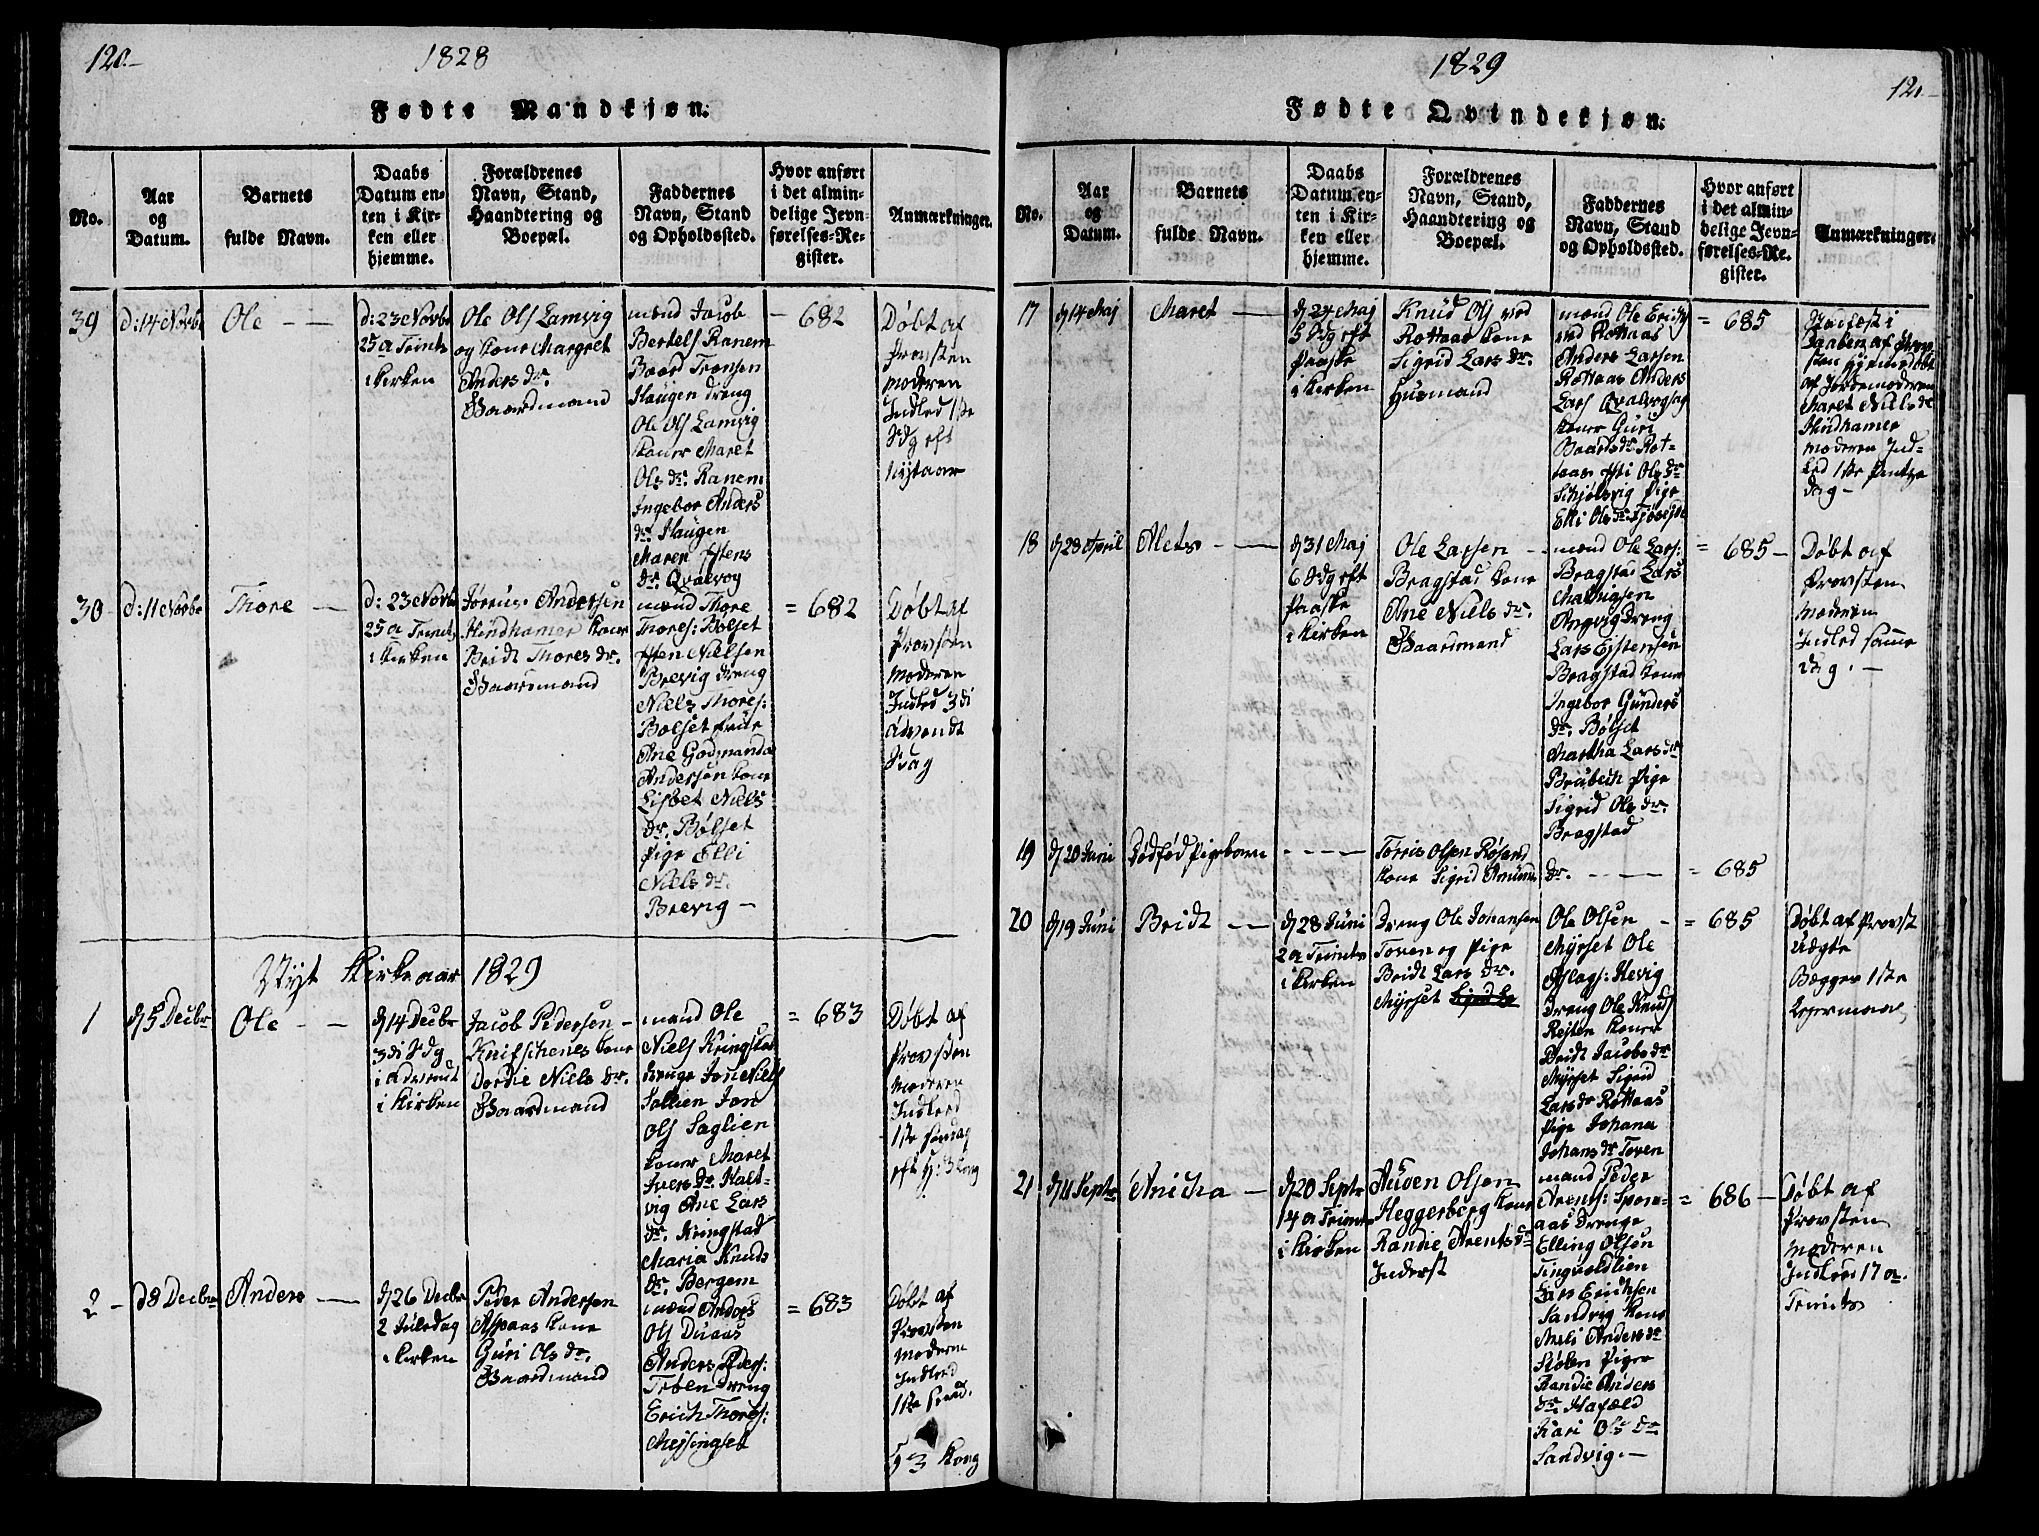 120.-
1828
Fødte Mandkjøn.
No.
Aar
og
Datum.
Barnets
fulde Navn.
Daabs
Datum en-
ten i Kir-
ken eller
hjemme.
Forældrenes
Navn, Stand,
Haandtering og
Boepæl.
Faddernes
Navn, Stand
og Opholdssted.
Hvor anført
i det almin-
delige Jevn-
førelses-Re-
gister.
Anmærkninger.
39
d: 14 Novbr
Ole - -
d: 23 Novbr
25 a Trinit
i Kirken
Ole Ols Lamvig
og Kone Margret
Anders dr.
Gaardmand
mænd Jacob
Bertels Ranem
Baard Tronsen
Haugen dreng
Ole Ols Lamvig
Koner Maret
Ols dr. Ranem
Ingebor Anders
dr. Haugen
Maren Estens
dr. Qvalvog
- 682
Døbt af
Provsten
moderen
Indled 1ste
Sdg eft
Nytaar
30
d: 11 Novbr
Thore -
d: 23 Novbr
25 a Trinit
i Kirken
Andersen
Hindhamer Kone
Bridt Thores dr.
Gaardmand
mænd Thore
Thores: Bølset
Esten Nielsen
Brevig dreng
Niels Thores:
Bølset
Ane Godmanda
Andersen Kone
Lisbet Niels
dr. Bølset
Pige Elli
Niels dr.
Brevig -
= 682
Døbt af
Provsten
moderen
Indled 3di
Advendt
Sdag
Nyt Kirkeaar 1829
1
d 5 Decbr
Ole - -
d 14 Decbr
3di Sdg
i Advendt
i Kirken
Jacob Pedersen -
Kone
Dordie Niels dr.
Gaardmand
mænd Ole
Niels Kringstad
drenge Jon Niels
Sollien Jon
Ols Saglien
Koner Maret
Ivers dr. Halt-
vig Ane Lars
dr. Kringstad
Maria Knuds
dr. Bergem
= 683
Døbt af
Provsten
moderen
Indled
1ste
eft H: 3 Kong
2 -
d 8 Decbr
Anders -
d 26 Decbr
2 Juledag
i Kirken
Peder Andersen
Aspaas Kone
Guri Ols dr.
Gaardmand
mænd Anders
Ols
Anders Peders:
dreng
Erich Thores:
Meisingset
= 683
Døbt af
Provsten
moderen
Indled
1ste
3 Kong
1829
121.-
Fødte Qvindekjøn.
No.
Aar
og
Datum.
Barnets
fulde Navn.
Daabs
Datum en-
ten i Kir-
ken eller
hjemme.
Forældrenes
Navn, Stand,
Haandtering og
Boepæl.
Faddernes
Navn, Stand
og Opholdssted.
Hvor anført
i det almin-
delige Jevn-
førelses-Re-
gister.
Anmærkninger.
17
d 14 Maj
Maret -
d 24 Maj
5 Sdg eft
Paaske
i Kirken
Knud Ols ved
Rottaas Kone
Sigrid Lars dr.
Husmand
mænd Ole Erichs
ved Rottaas
Anders Larsen
Rottaas Anders
Lars
Koner Guri
Baards dr. Rot-
taas Ols dr
Pige
Elli Ols dr
= 685
Stadfæst i
Daaben af Prov-
sten hjemmedøbt
af Jordemoderen
Maret Niels dr
Hindhamer
moderen Ind-
led 1ste Pintse
dag -
18
d 28 April
d 31 Maj
6 Sdg eft
Paaske
i Kirken
Ole Larsen -
Bragstad Kone
Ane Niels dr.
Gaardmand
mænd Ole Lars:
Bragstad Lars
Angvig Dreng
Lars Estensen
Bragstad Kone
Ingebor Gunders
dr. Bølset
Martha Lars dr
Pige
Sigrid Ols dr.
Bragstad
= 685 -
Døbt af
Provsten
moderen
Indled samme
dag. -
19
d 20 Juni
Dødfød Pigebarn
- - - -
Torris Olsen Røsand
Kone Sigrid Amunds dr. - - -
= 685
20
d 19 Juni
Bridt -
d 28 Juni
2 a Trinits
i Kirken
Dreng Ole Johansen
Toven og Pige
Bridt Lars dr.
Myrset
Ole Olsen -
Myrset Ole
Hevig
Dreng Ole Knuds
Rejten Koner
Bridt Jacobs dr
Myrset Sigrid
Lars dr Rottaas
Pige Johana
Johans dr Toven
= 685
Døbt af Provst
Uægte
Begges 1ste
Lejermaal
21
d 4 Septr
Anicha -
d 20 Septr
14 a Trinit
i Kirken
Auden Olsen
Heggerberg Kone
Randie Arents dr
Inderst
mænd Peder
Arents: Spor-
aas Drenge
Elling Olsen
Tingvoldlien
Lars Erichsen
Sandvig Kone
Anders dr
Stølen Piger
Randie Anders
dr. Hafæld
Kari Ols dr
Sandvig. -
= 686 -
Døbt af
Provsten
moderen
Indled 17 a.
Trinits